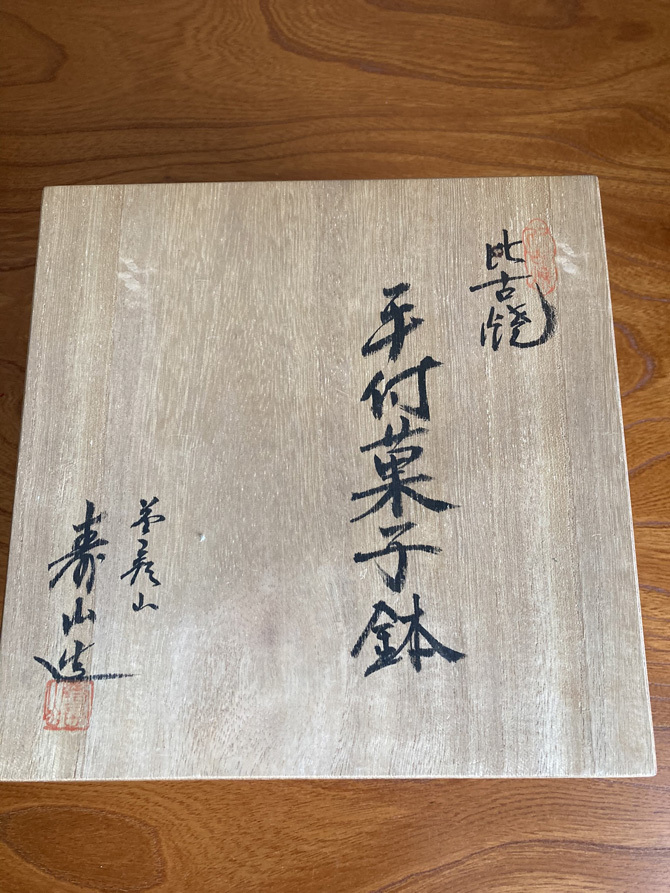 比古焼
手付菓子鉢
英彦山
寿山造